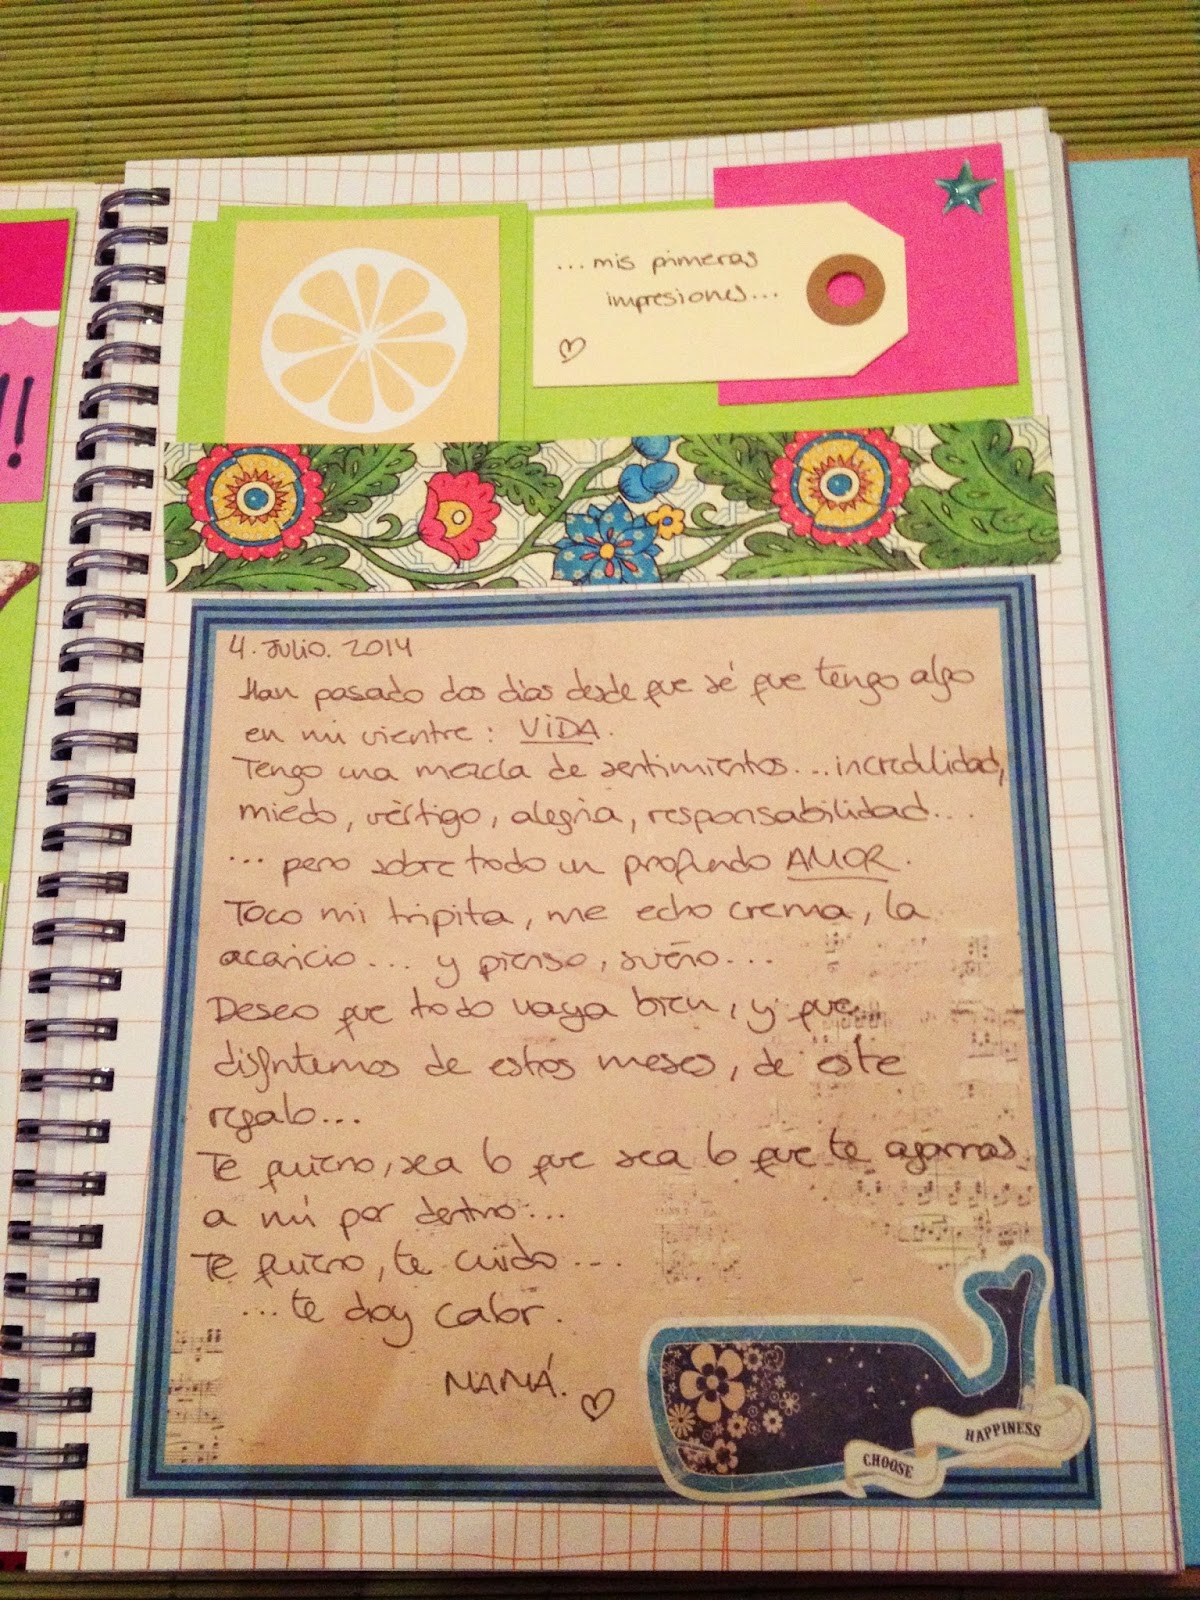 !!
...mis primeras
impresiones...
4. Julio. 2014
Han pasado dos días desde que sé que tengo algo
en mi vientre: VIDA.
Tengo una mezcla de sentimientos...incredulidad,
miedo, vértigo, alegría, responsabilidad...
... pero sobre todo un profundo AMOR.
Toco mi tripita, me echo crema, la
acaricio... y pienso, sueño...
Deseo que todo vaya bien, y que
disfrutemos de estos meses, de este
regalo...
Te quiero, sea lo que sea lo que te agarras
a mí por dentro...
Te quiero, te cuido...
...te doy calor.
MAMÁ.
CHOOSE HAPPINESS